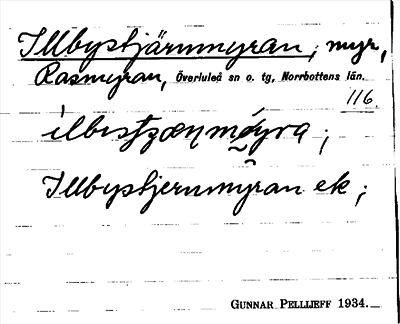 Illbystjärnmyran; myr,
Rasmyran, Överluleå sn o. tg, Norrbottens län.
116.
Illbystjernmyran ek;
GUNNAR PELLIJEFF 1934.